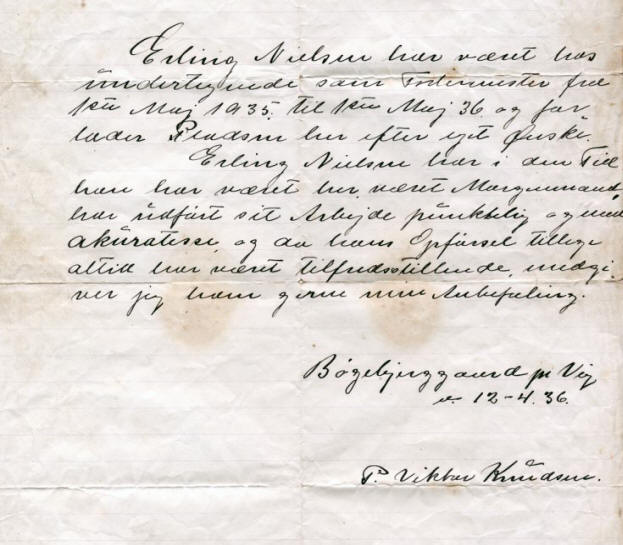 Erling Nielsen har været hos
undertegnede som Fodermester fra
1ste Maj 1935. til 1ste Maj 36. og for
lader Pladsen her efter eget Ønske.
Erling Nielsen har i den Tid
han har været her, været Morgenmand,
har udført sit Arbejde pünktelig og med
akuratesse, og da hans Opførsel tillige
altid har været tilfredsstillende, medgi
ver jeg ham gerne min Anbefaling.
Bøgebjerggaard pr Vig
12-4.36.
P. Viktor Knudsen.